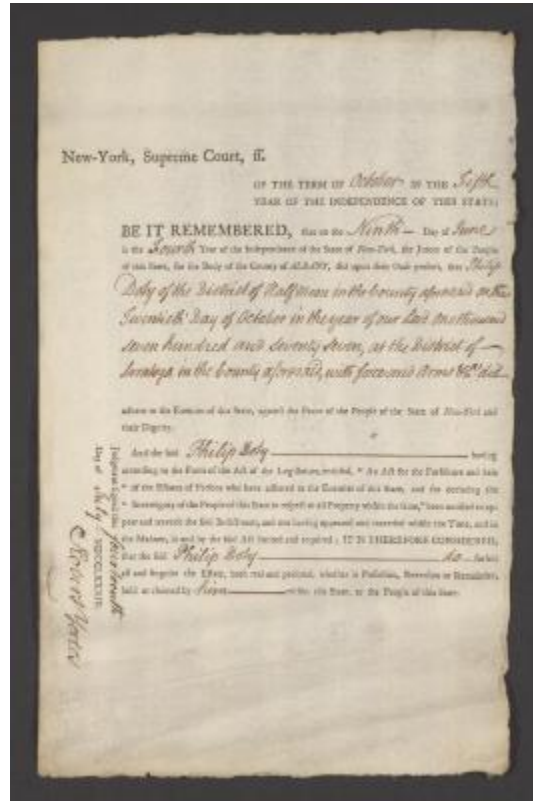 New-York, Supreme Court, ss.
OF THE TERM OF October IN THE Fifth
YEAR OF THE INDEPENDENCE OF THIS STATE:
BE IT REMEMBERED, that on the Ninth Day of June
in the Fourth Year of the Independence of the State of New-York, the Jurors of the People
of this State, for the Body of the County of ALBANY, did upon their Oath present, that Philip
Doty of the District of Halfmoon in the County aforesaid on the
Twentieth Day of October in the year of our Lord one thousand
seven hundred and seventy seven, at the District of
Saratoga in the County aforesaid, with force and Arms &c. did
adhere to the Enemies of this State, against the Peace of the People of the State of New-York and
their Dignity.
And the said Philip Doty having
according to the Form of the Act of the Legislature, entitled, " An Act for the Forfeiture and Sale
" of the Estates of Persons who have adhered to the Enemies of this State, and for declaring the
" Sovereignty of the People of this State in respect to all Property within the same," been notified to ap-
pear and traverse the said Indictment, and not having appeared and traversed within the Time, and in
the Manner, in and by the said Act limited and required ; IT IS THEREFORE CONSIDERED,
that the said Philip Doty do forfeit
all and singular the Estate, both real and personal, whether in Possession, Reversion or Remainder,
held or claimed by him within this State, to the People of this State.
Judgment signed this fourteenth
Day of July MDCCLXXXIII.
Robert Yates